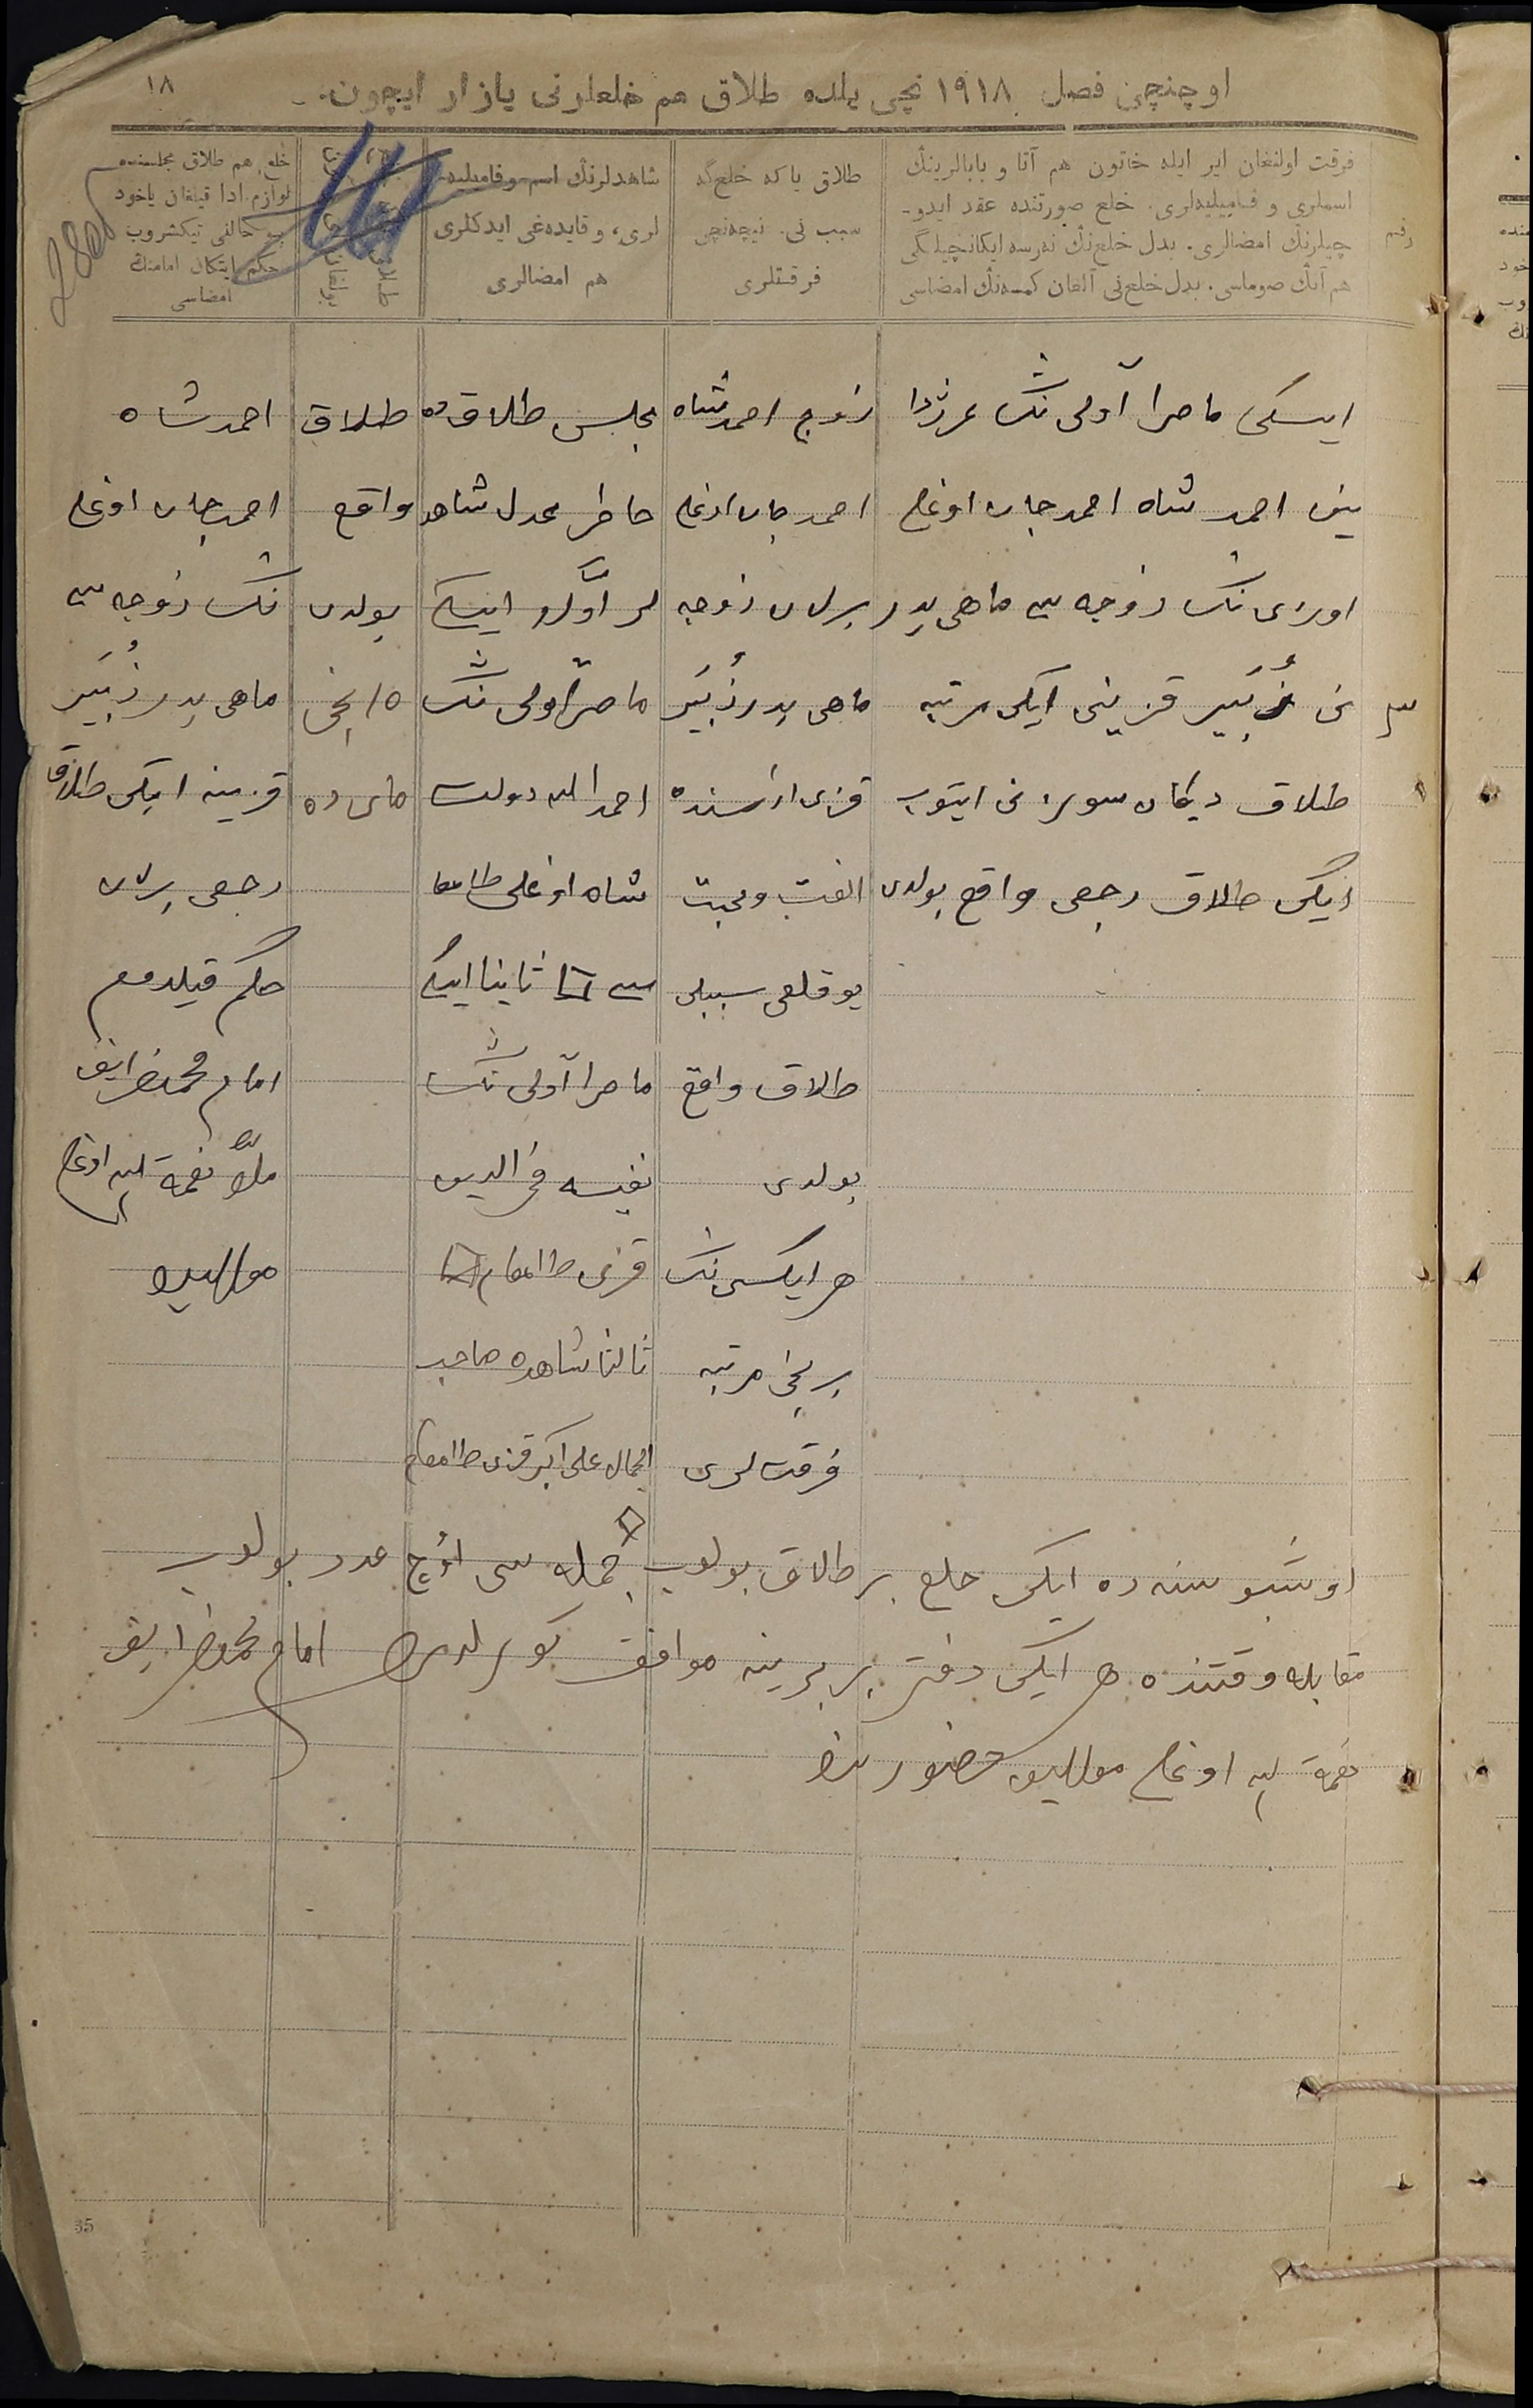 اوچنچی فصل ۱۹۱۸ نچی یلده طلاق هم خلعلرنی یازار ایچون.
۱۸
رقم
فرقت اولنغان ایر ایله خاتون هم آتا و بابالرینڭ
اسملری و فامیلیه‌لری. خلع صورتنده عقد ایدو-
چیلرنڭ امضالری. بدل خلع‌نڭ نه‌رسه ایکانچیلگی
هم آنڭ صوماسی. بدل خلع‌نی آلغان کمسه‌نڭ امضاسی
طلاق یا که خلع‌گه
سبب نی. نیچه‌نچی
فرقتلری
شاهدلرنڭ اسم و فامیلیه-
لری، و قایده‌غی ایدکلری
هم امضالری
خلع هم طلاق مجلسنده
لوازم ادا قیلغان یاخود
بو حالنی تیکشروب
حکم ایتکان امامنڭ
امضاسی
۳
ایسکی ماصرا آولی ننڭ
احمد شاه احمدجان اوغلی
اوزی ننڭ زوجه سی ماهی بدر
نی زُبَیر قزینی ایکی مرتبه
طلاق دیکان سوزنی ایتوب
ایکی طلاق رجعی واقع بولدی
زوج احمدشاه
احمدجان اوغلی
برلان زوجه
ماهی بدر زُبَیر
قزی اراسنده
الفت و محبت
یوقلغی سببلی
طلاق واقع
بولدی
هر ایکسی ننڭ
برنچی مرتبه
فرقت لری
مجلس طلاق ده
حاضر عدل شاهد
لر اوّلا ایسکی
ماصرا آولی ننڭ
احمدالله دولت
شاه اوغلی
ثانیا ایسکی
ماصرا آولی ننڭ
نفیسه فخرالدین
قزی
ثالثا شاهده صاحب
الجمال علی اکبر قزی
طلاق
واقع
بولدی
۱۵ نچی
مای ده
احمدشاه
احمدجان اوغلی
ننڭ زوجه سی
ماهی بدر زُبَیر
قزینه ایکی طلاق
رجعی برلان
حکم قیلدم
امام
ملّا نعمة الله اوغلی
اوشبو سنه ده ایکی خلع بر طلاق بولوب جمله سی اوُچ عدد بولوب
مقابله وقتنده هر ایکی دفتر بر برینه موافق کورلدی امام
نعمة الله اوغلی
35